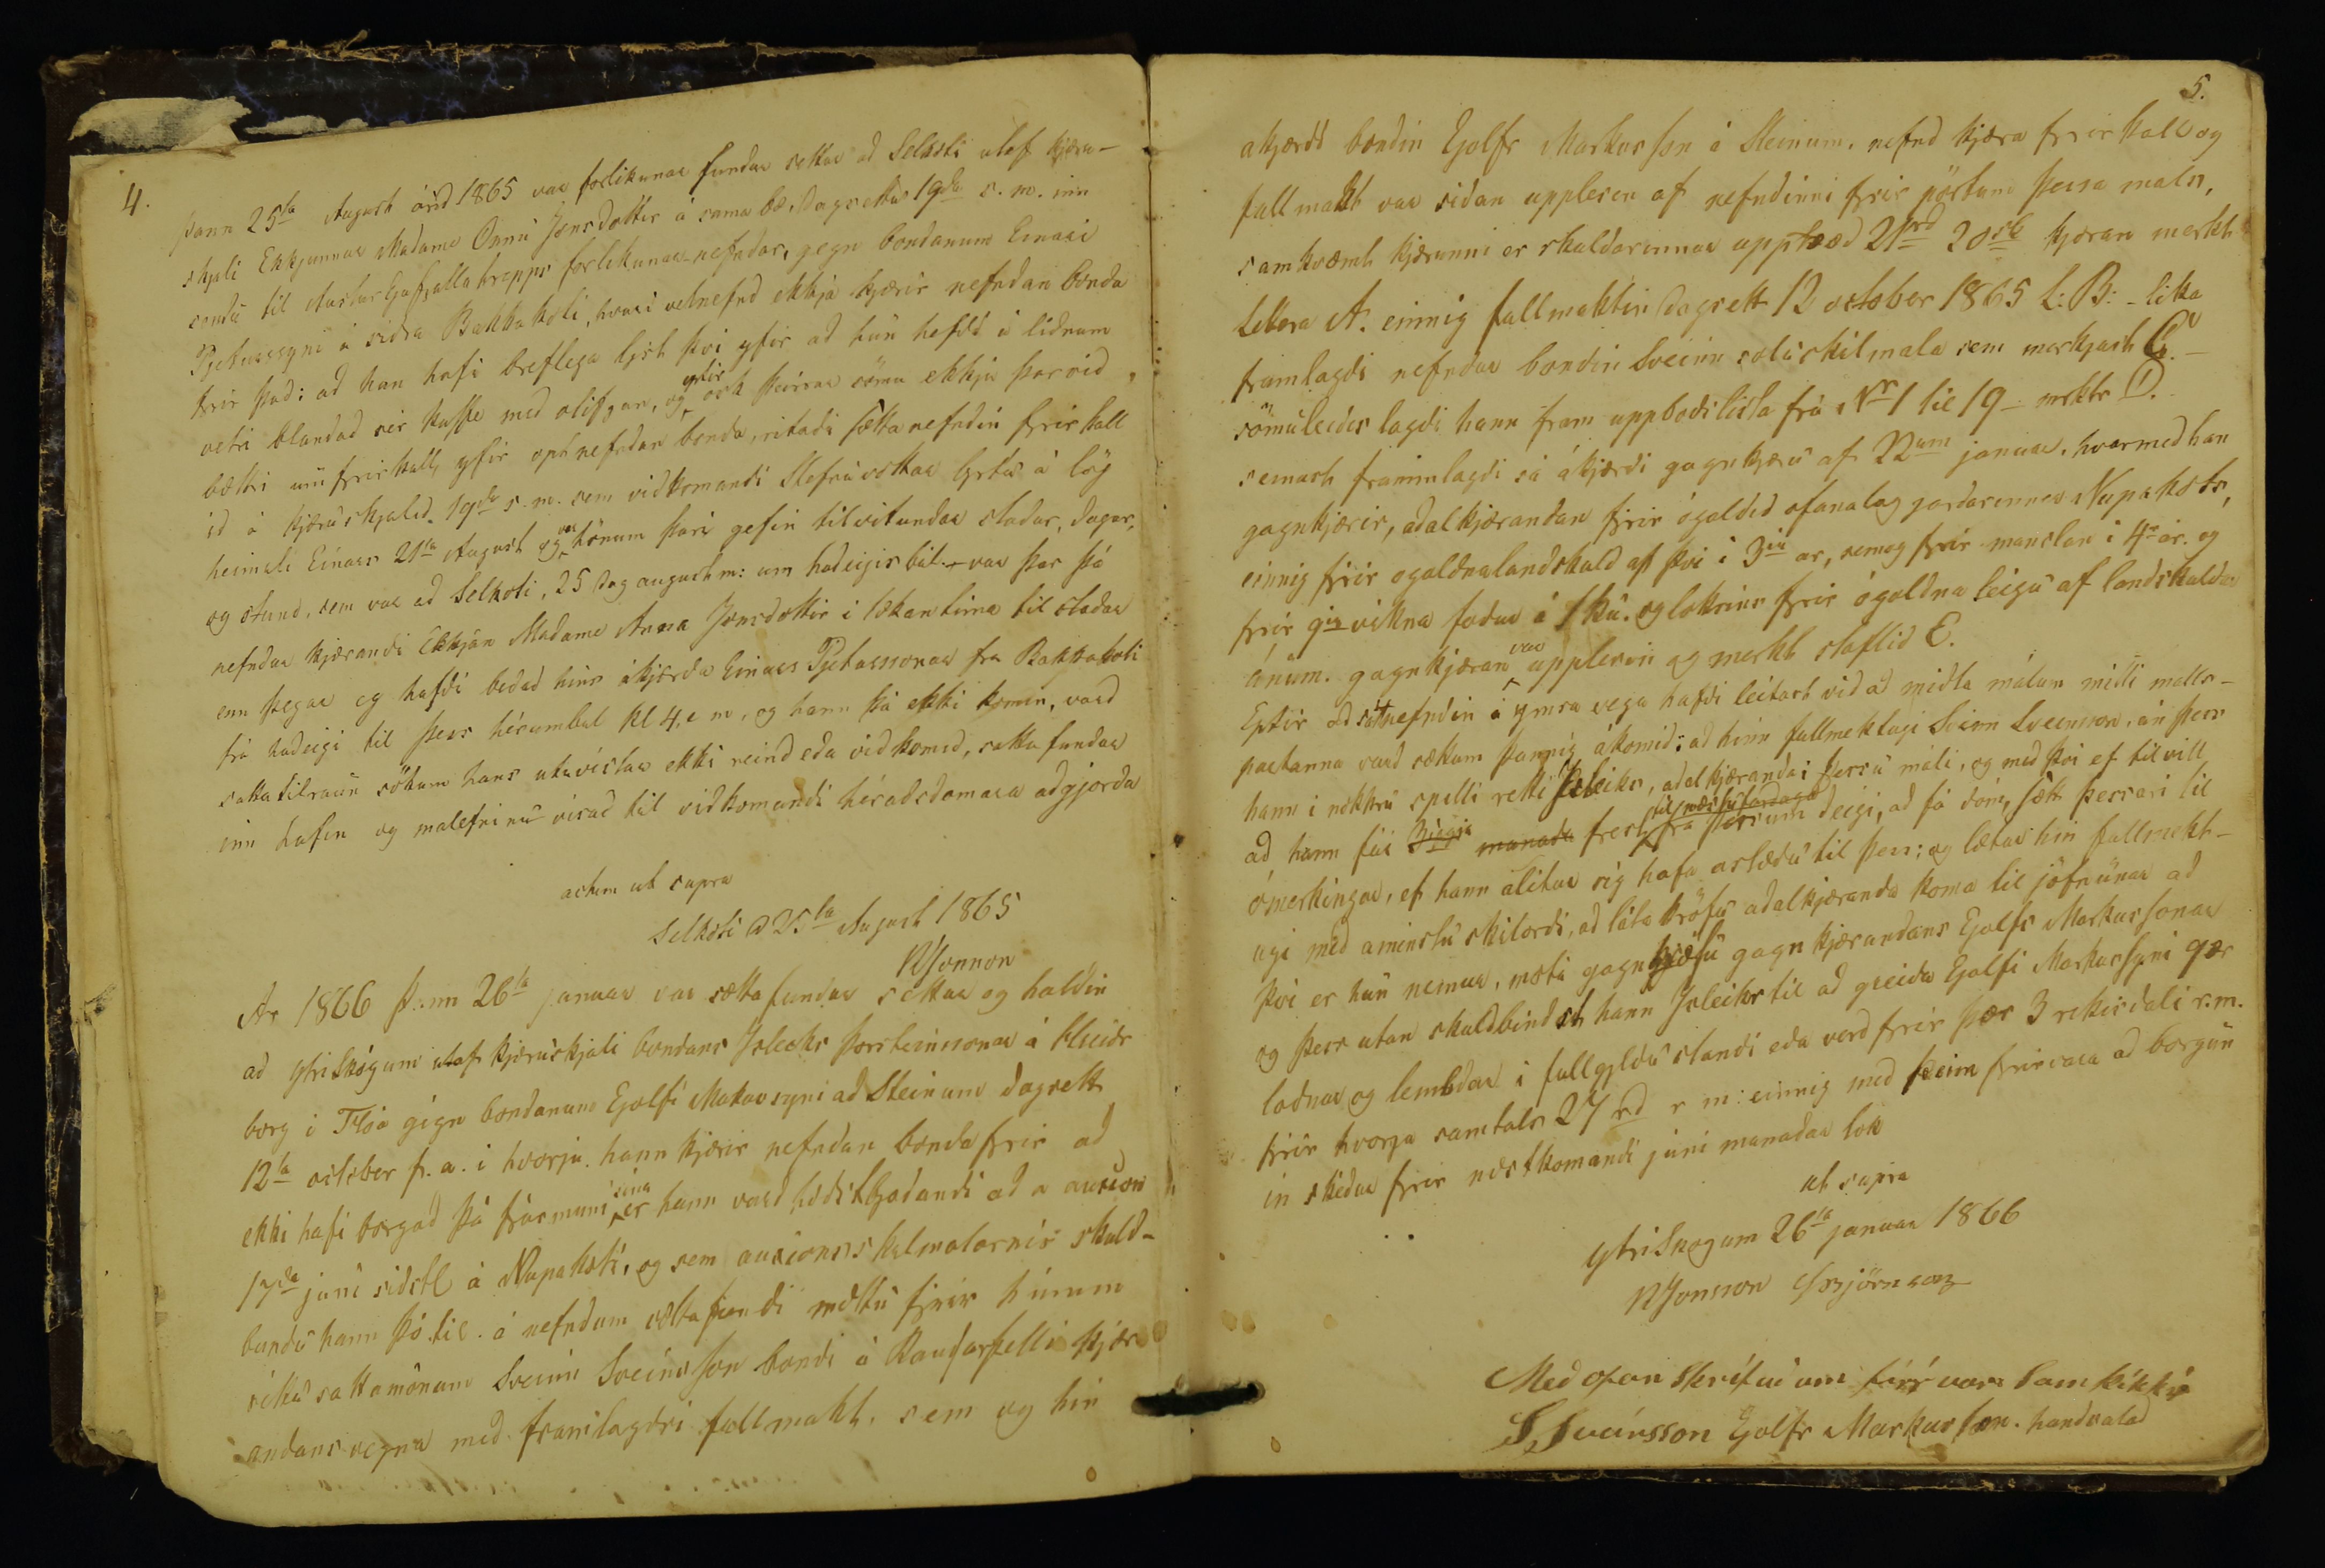 4.
þann 25ta August árid 1865 var forlikunar fundur settur ad Selkoti utaf kjæru-
skjali Ekkjunnar Madame Önnu Jensdottir á sama bæ, dagsettu 19da s. m. inn
sendu til Austur Eyafjallahrepps forlikunar nefndar, gegn bondanum Einari
Pjeturssyni á sidra Bakkakoti, hvari velnefnd ekkja kjærir nefndan bónda
firir það: ad han hafi breflega lyst þvi yfir ad hún hefdi i lidnum
vetri blandad sér kaffe med olifgan, og yfir ósk þeirrar sömu ekkju þarvid
bætti um firirkall, yfir optnefndan bonda, ritadi sættanefndin firirkall
id á kjæruskjalid 19da s. m. sem vidkomandi stefnuvottar lystu á lög
heimili Einars 21ta August og var hönum þari gefin til vitundar stadur, dagur,
og stund, sem var ad Selkoti, 25 dag augustm: um hadeigis bil. - var þar þá
nefndur kjærandi Ekkjan Madame Anna Jensdottir i tækan tima til stadar
enn þegar eg hafdi bedad hins ákjærda Einars Pjeturssonar fra Bakkakoti
frá hadeigi til þess hérumbil kl 4, e m, og hann þá ekki komin, vard
sattatilraun sökum hans utivistar ekki reind eda vidkomid, satta fundur
inn hafin og malefninu visad til vidkomandi héradsdomara adgjorda
actum ut supra
Selkoti d 25ta August 1865
NJonnon
Ar 1866 þann 26ta januar var sættafundur settur og haldin
ad YtriSkógum utaf kjæruskjali bondans Isleiks Þorsteinssonar á Kluidr
borg i Flóa gégn bondanum Ejolfi Markussyni ad Steinum dagsett
12ta october f. a. i hvorju hann kjærir nefndan bonda firir ad
ekki hafi borgad þá fjármuni sina er hann vard hæstbjodandi ad a auxion
17da júni sidstl á Nupakoti, og sem auxionsskilmalarnir skuld-
bundu hann þó til. á nefndum sættafundi mættu firir hinum
réttu sattamönum Sveinn Sveinsson bondi á Raufarfelli kjær
andans vegna med framlagdri fullmakt, sem og hin
5.
akjærdi bondin Ejolfr Markusson á Steinum, nefnd kjæra firirkall og
fullmakt var sidan upplesin af nefndinni firir pörtum þessa mals,
samkvæmt kjærunni er skuldarinnar upphæd 21rd 20sk kjæran merkt
Littera A. einnig fullmaktin dagsett 12 october 1865 L: B: - lika
framlagdi nefndur bondin Sveinn söluskilmala sem merkjast C. -
sömuleidis lagdi hann fram uppbodslista frá Nr 1 til 19 - mrktr D.
seinast frammlagdi sá ákjærdi gagnkjæru af 22um januar, hvarmed han
gagnkjærir, adalkjærandan firir ógoldid ofanalag jardarinnar Nupakots,
einnig firir ogoldnalandskuld af þvi i 3iu ar, semog firir manslan i 4a ár. og
firir gis vikna fodur á 1 ku. og loksins firir ógoldna leigu af landskuldar
ánum. gagnkjæran var upplesin og merkt staflid E.
Eptir ad sættnefndin á ymsa vega hafdi leitast vid ad midla málum milli malls-
partanna vard sættum þannig ákomid: ad hinn fullmektugi Sveinn Sveinsson, án þess
hann i nokkru spilli rétti Isleiks, adalkjæranda i þessu máli, og med þvi ef til vill
ad hann fái 3iggja manada frest til næstu fardaga fra þessum deigi, ad fá dóm, sætt þessari til
ómerkingar, ef hann álitur sig hafa astædu til þess; og lætur hin fullmekt-
ugi med áminstu skilordi, ad láta kröfu adalkjæranda koma til jöfnunar ad
þvi er hún nemur, móti gagnkjæru gagnkjærandans Ejolfs Markussonar
og þess utan skuldbindst hann Isleikr til ad greida Ejolfi Markussyni 9 ær
lodnar og lembdar i fullgyldu standi eda verd firir þær 3 rikisdali r. m.
firir hverja samtals 27 rd r m: einnig med þeim firirvara ad borgun
in skédur firir næstkomandi júni manadar lok
ut supra
YtriSkogum 26ta januar 1866
NJonsson ISbjörnson
Med ofan skrifuu um fyrir vara Samkikkir
S Sveinsson Ejolfr Markusson. handsalad